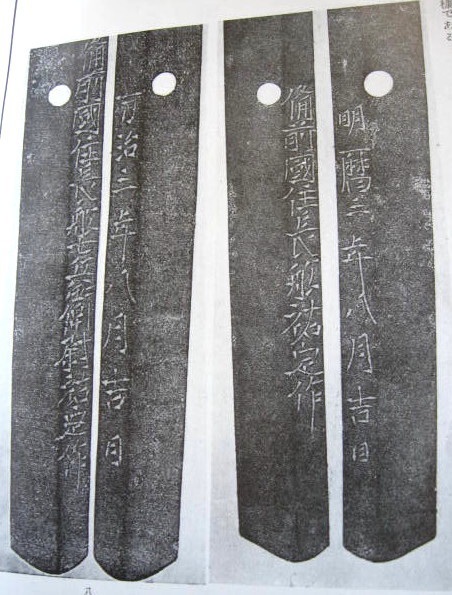 様である
明暦三年八月吉日
備前國住長船祐定作
万治三年八月吉日
備前國住長船七兵衛尉祐定作
八